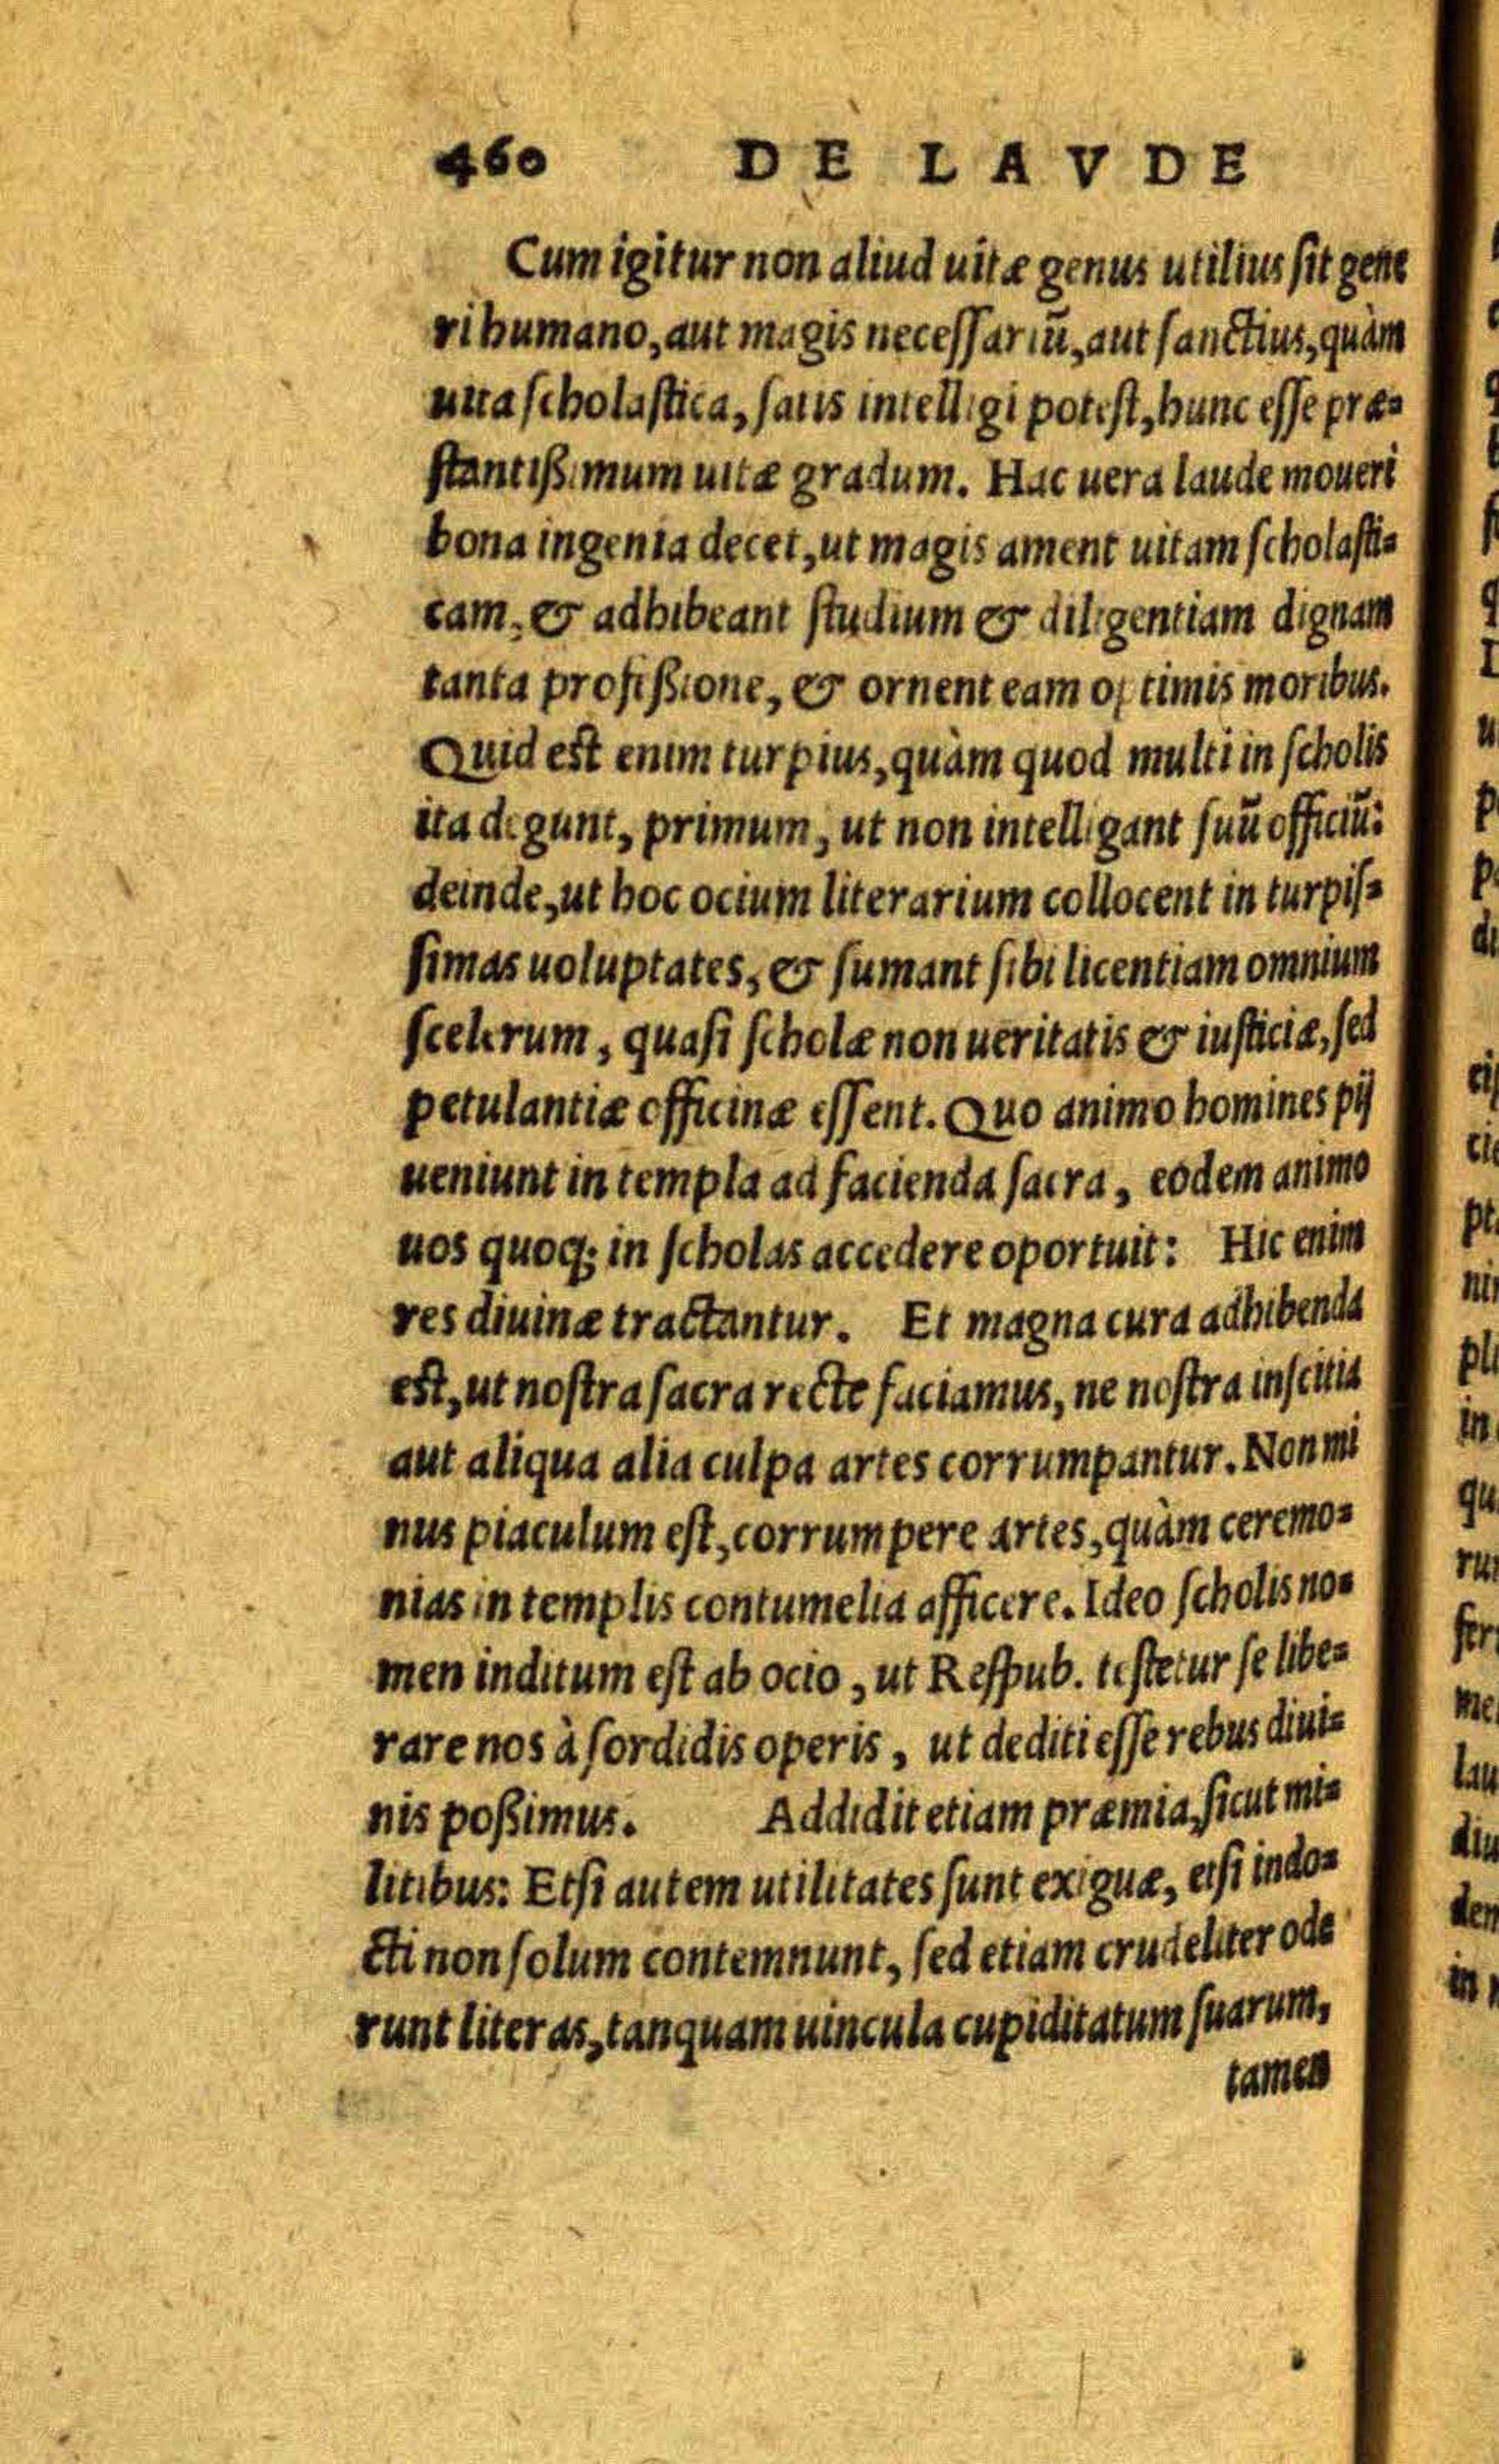 460 DE LAVDE
Cum igitur non aliud uitæ genus utilius ſit gene
ri humano, aut magis neceſſariũ, aut ſanctius, quàm
uita ſcholaſtica, ſatis intelligi poteſt, hunc eſſe præ-
ſtantißimum uitæ gradum. Hac uera laude moueri
bona ingenia decet, ut magis ament uitam ſcholaſti-
cam, & adhibeant ſtudium & diligentiam dignam
tanta profeßione, & ornent eam optimis moribus.
Quid eſt enim turpius, quàm quod multi in ſcholis
ita degunt, primum, ut non intelligant ſuũ officiũ:
deinde, ut hoc ocium literarium collocent in turpiſ-
ſimas uoluptates, & ſumant ſibi licentiam omnium
ſcelerum, quaſi ſcholæ non ueritatis & iuſticiæ, ſed
petulantiæ officinæ eſſent. Quo animo homines pij
ueniunt in templa ad facienda ſacra, eodem animo
uos quoq; in ſcholas accedere oportuit: Hic enim
res diuinæ tractantur. Et magna cura adhibenda
eſt, ut noſtra ſacra recte faciamus, ne noſtra inſcitia
aut aliqua alia culpa artes corrumpantur. Non mi
nus piaculum eſt, corrumpere artes, quàm ceremo-
nias in templis contumelia afficere. Ideo ſcholis no-
men inditum eſt ab ocio, ut Reſpub. teſtetur ſe libe-
rare nos à ſordidis operis, ut dediti eſſe rebus diui-
nis poßimus. Addidit etiam præmia, ſicut mi-
litibus: Etſi autem utilitates ſunt exiguæ, etſi indo-
cti non ſolum contemnunt, ſed etiam crudeliter ode
runt literas, tanquam uincula cupiditatum ſuarum,
tamen